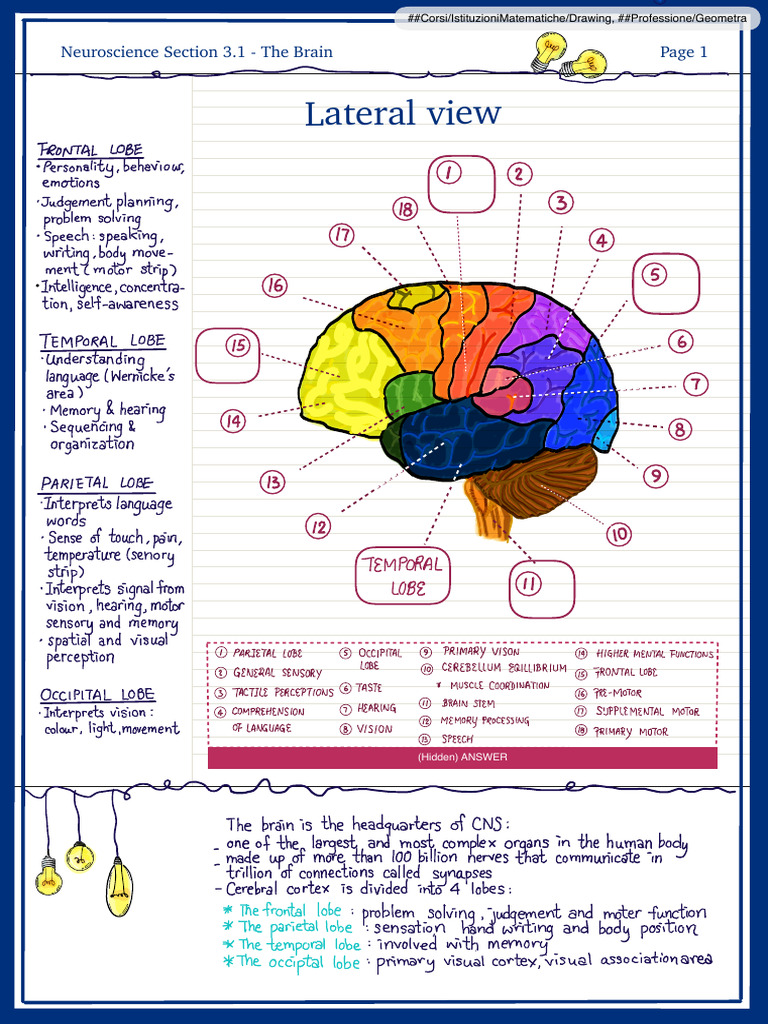 ##Corsi/IstituzioniMatematiche/Drawing, ##Professione/Geometra
Neuroscience Section 3.1 - The Brain
Page 1
Lateral view
FRONTAL LOBE
· Personality, behaviour,
emotions
· Judgement planning,
problem solving
· Speech: speaking,
writing, body move-
ment (motor strip)
· Intelligence, concentra-
tion, self-awareness
TEMPORAL LOBE
· Understanding
language (Wernicke's
area)
· Memory & hearing
· Sequencing &
organization
PARIETAL LOBE
· Interprets language
words
· Sense of touch, pain,
temperature (senory
strip)
· Interprets signal from
vision, hearing, motor
sensory and memory
· spatial and visual
perception
OCCIPITAL LOBE
· Interprets vision:
colour, light, movement
1
2
3
4
5
6
7
8
9
10
11
12
13
14
15
16
17
18
TEMPORAL
LOBE
1 PARIETAL LOBE
2 GENERAL SENSORY
3 TACTILE PERCEPTIONS
4 COMPREHENSION
OF LANGUAGE
5 OCCIPITAL
LOBE
6 TASTE
7 HEARING
8 VISION
9 PRIMARY VISON
10 CEREBELLUM EQILIBRIUM
* MUSCLE COORDINATION
11 BRAIN STEM
12 MEMORY PROCESSING
13 SPEECH
14 HIGHER MENTAL FUNCTIONS
15 FRONTAL LOBE
16 PRE-MOTOR
17 SUPPLEMENTAL MOTOR
18 PRIMARY MOTOR
(Hidden) ANSWER
The brain is the headquarters of CNS:
- one of the largest and most complex organs in the human body
- made up of more than 100 billion nerves that communicate in
trillion of connections called synapses
- Cerebral cortex is divided into 4 lobes:
* The frontal lobe: problem solving, judgement and moter function
* The parietal lobe: sensation hand writing and body position
* The temporal lobe: involved with memory
* The occiptal lobe: primary visual cortex, visual association area